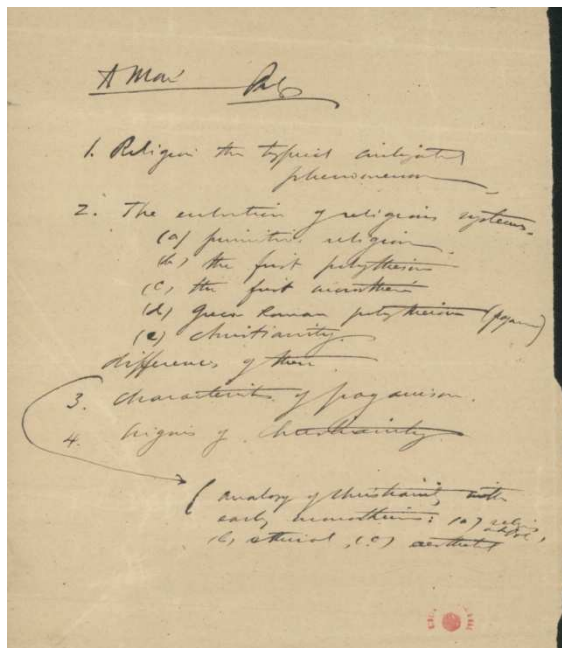 1. Religion the typical
phenomenon
2. The evolution of religious systems.
(a) primitive religion
(b) the first polytheism
(c) the first monotheism
(d) Greco Roman polytheism (pagan)
(e) Christianity.
differences of them
3. Characteristics of paganism.
4. Origins of Christianity.
( analogy of Christianity with
early monotheism: (a)
(b) ethical, (c) aesthetic